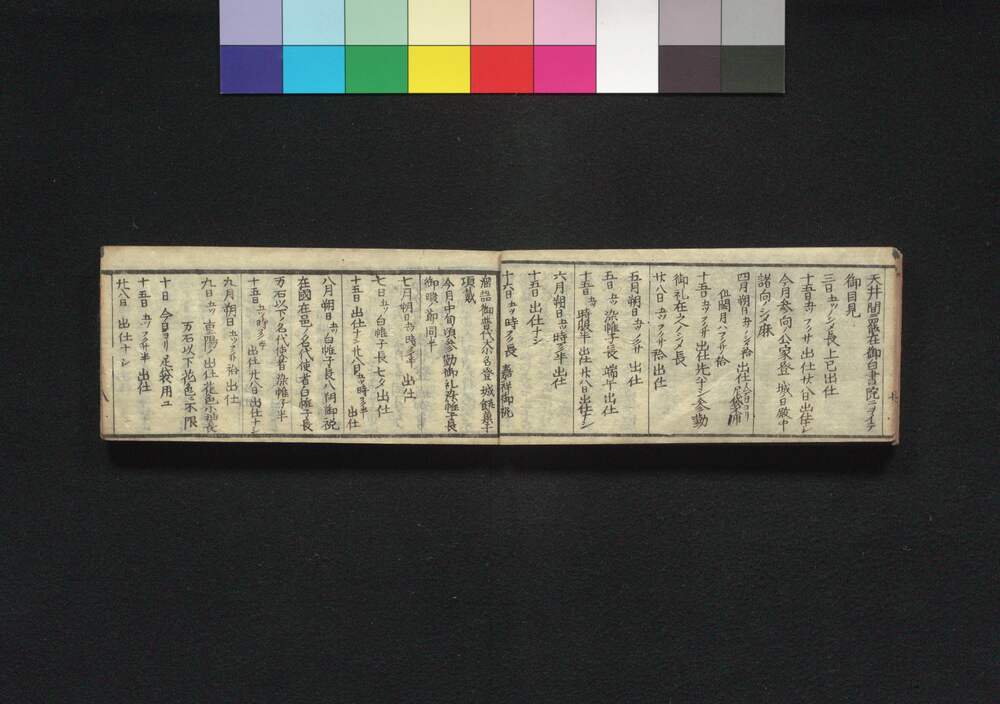 天井間罷在御白書院ニヲイテ
御目見
三日 五ツ シメ長 上巳出仕
十五日 五ツ フクサ 出仕 廿八日出仕ナシ
今月参向ノ公家登 城日殿中
諸向シメ麻
四月朔日 五ツ シメ袷 出仕 今日ヨリ足袋不用
但閏月ハフクサ袷
十五日 五ツ フクサ 出仕 外人 参勤
御礼在之ハシメ長
廿八日 五ツ フクサ袷 出仕
五月朔日 五ツ フクサ 出仕
五日 五ツ 染帷子長 端午出仕
十五日 五ツ 時服半 出仕 廿八日出仕ナシ
六月朔日 五ツ時 半 出仕
十五日 出仕ナシ
十六日 五ツ時 長 嘉祥御祝
溜詰御普代大小名登 城餅菓子
頂戴
今月中旬頃参勤御礼染帷子長
御暇ノ節同半
七月朔日 五ツ時 半 出仕
七日 五ツ 白帷子長 七夕出仕
十五日 出仕ナシ 廿八日 五ツ時 半 出仕
八月朔日 五ツ 白帷子長 八朔御祝
在國在邑ノ名代使者白帷子長
万石以下ノ名代使者染帷子半
十五日 五ツ時 半 出仕 廿八日出仕ナシ
九月朔日 五ツ フクサ袷 出仕
九日 五ツ 重陽ノ出仕 花色小袖長
万石以下花色ニ不限
十日 今日ヨリ足袋用ユ
十五日 五ツ フクサ半 出仕
廿八日 出仕ナシ